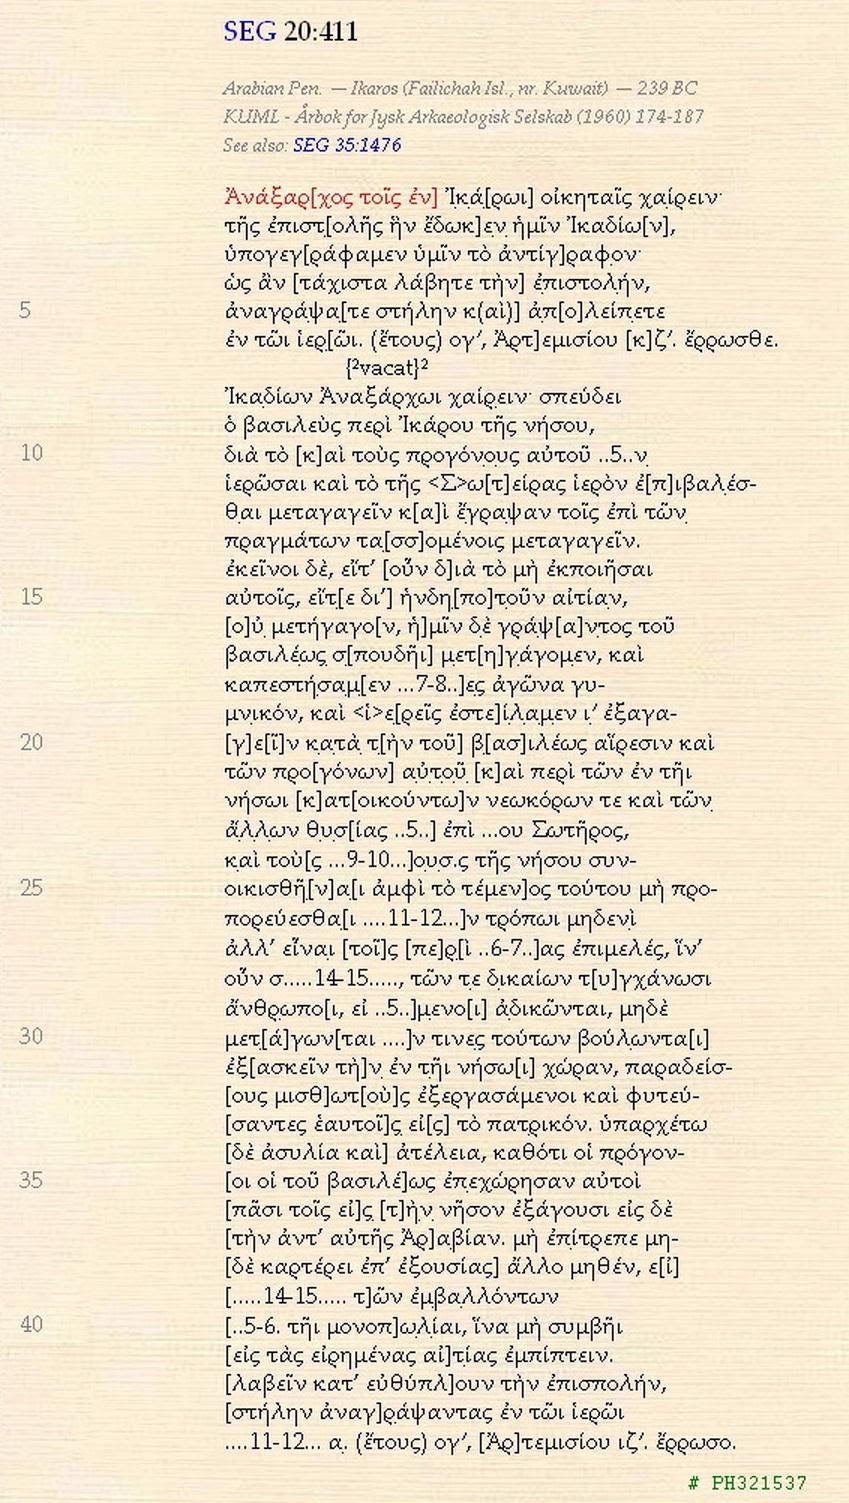 SEG 20:411
Arabian Pen. — Ikaros (Failichah Isl., nr. Kuwait) — 239 BC
KUML - Årbok for Jysk Arkaeologisk Selskab (1960) 174-187
See also: SEG 35:1476
Ἀνάξαρ[χος τοῖς ἐν] Ἰκά[ρωι] οἰκηταῖς χαίρειν·
τῆς ἐπιστ[ολῆς ἣν ἔδωκ]εν ἡμῖν Ἰκαδίω[ν],
ὑπογεγ[ράφαμεν ὑμῖν τὸ ἀντίγ]ραφον·
ὡς ἂν [τάχιστα λάβητε τὴν] ἐπιστολήν,
5 ἀναγράψα[τε στήλην κ(αὶ)] ἀπ[ο]λείπετε
ἐν τῶι ἱερ[ῶι. (ἔτους) ογʹ, Ἀρτ]εμισίου [κ]ζʹ. ἔρρωσθε.
{²vacat}²
Ἰκαδίων Ἀναξάρχωι χαίρειν· σπεύδει
ὁ βασιλεὺς περὶ Ἰκάρου τῆς νήσου,
10 διὰ τὸ [κ]αὶ τοὺς προγόνους αὐτοῦ ..5..ν
ἱερῶσαι καὶ τὸ τῆς <Σ>ω[τ]είρας ἱερὸν ἐ[π]ιβαλέσ-
θαι μεταγαγεῖν κ[α]ὶ ἔγραψαν τοῖς ἐπὶ τῶν
πραγμάτων τα[σσ]ομένοις μεταγαγεῖν.
ἐκεῖνοι δὲ, εἴτʹ [οὖν δ]ιὰ τὸ μὴ ἐκποιῆσαι
15 αὐτοῖς, εἴτ[ε διʹ] ἡνδη[πο]τοῦν αἰτίαν,
[ο]ὐ μετήγαγο[ν, ἡ]μῖν δὲ γράψ[α]ντος τοῦ
βασιλέως σ[πουδῆι] μετ[η]γάγομεν, καὶ
καπεστήσαμ[εν ...7-8..]ες ἀγῶνα γυ-
μνικόν, καὶ <ἱ>ε[ρεῖς ἐστε]ίλαμεν ιʹ ἐξαγα-
20 [γ]ε[ῖ]ν κατὰ τ[ὴν τοῦ] β[ασ]ιλέως αἵρεσιν καὶ
τῶν προ[γόνων] αὐτοῦ [κ]αὶ περὶ τῶν ἐν τῆι
νήσωι [κ]ατ[οικούντω]ν νεωκόρων τε καὶ τῶν
ἄλλων θυσ[ίας ..5..] ἐπὶ ...ου Σωτῆρος,
καὶ τοὺ[ς ...9-10...]ουσ.ς τῆς νήσου συν-
25 οικισθῆ[ν]α[ι ἀμφὶ τὸ τέμεν]ος τούτου μὴ προ-
πορεύεσθα[ι ....11-12...]ν τρόπωι μηδενὶ
ἀλλʹ εἶναι [τοῖ]ς [πε]ρ[ὶ ..6-7..]ας ἐπιμελές, ἵνʹ
οὖν σ.....14-15....., τῶν τε δικαίων τ[υ]γχάνωσι
ἄνθρωπο[ι, εἰ ..5..]μενο[ι] ἀδικῶνται, μηδὲ
30 μετ[ά]γων[ται ....]ν τινες τούτων βούλωντα[ι]
ἐξ[ασκεῖν τὴ]ν ἐν τῆι νήσω[ι] χώραν, παραδείσ-
[ους μισθ]ωτ[οὺ]ς ἐξεργασάμενοι καὶ φυτεύ-
[σαντες ἑαυτοῖ]ς εἰ[ς] τὸ πατρικόν. ὑπαρχέτω
[δὲ ἀσυλία καὶ] ἀτέλεια, καθότι οἱ πρόγον-
35 [οι οἱ τοῦ βασιλέ]ως ἐπεχώρησαν αὐτοὶ
[πᾶσι τοῖς εἰ]ς [τ]ὴν νῆσον ἐξάγουσι εἰς δὲ
[τὴν ἀντʹ αὐτῆς Ἀρ]αβίαν. μὴ ἐπίτρεπε μη-
[δὲ καρτέρει ἐπʹ ἐξουσίας] ἄλλο μηθέν, ε[ἰ]
[.....14-15..... τ]ῶν ἐμβαλλόντων
40 [..5-6. τῆι μονοπ]ωλίαι, ἵνα μὴ συμβῆι
[εἰς τὰς εἰρημένας αἰ]τίας ἐμπίπτειν.
[λαβεῖν κατʹ εὐθύπλ]ουν τὴν ἐπισπολήν,
[στήλην ἀναγ]ράψαντας ἐν τῶι ἱερῶι
....11-12... α. (ἔτους) ογʹ, [Ἀρ]τεμισίου ιζʹ. ἔρρωσο.
# PH321537